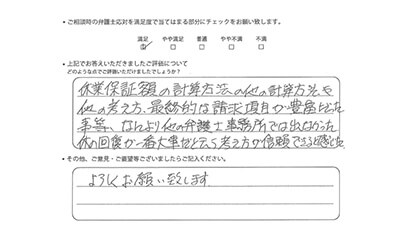 ・ご相談時の弁護士応対を満足度で当てはまる部分にチェックをお願い致します。
満足 やや満足 普通 やや不満 不満
☑ □ □ □ □
・上記でお答えいただきましたご評価について
どのような点でご評価いただけましたでしょうか？
休業保証額の計算方法への他の計算方法や
他の考え方、最終的な請求項目が豊富だった
事等、なんより他の弁護士事務所では出なかった
体の回復が一番大事だという考え方が信頼できると感じた
・その他、ご意見・ご要望等ございましたらご記入ください。
よろしくお願い致します